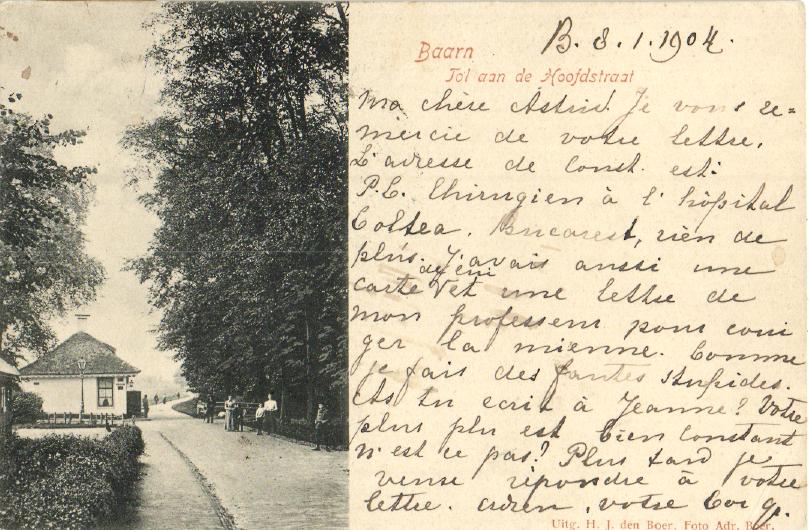 B. 8.1.1904.
Baarn
Tol aan de Hoofdstraat
Ma chère Astrid! Je vous re=
mercie de votre lettre.
L'adresse de Const. est:
P.C. Chirugien à l'hôpital
Coltea. Bucarest, rien de
plus. J'avais aussi une
carte et une lettre de
mon professeur pour corri
ger la mienne. Comme
je fais des fautes stupides.
As tu ecrit à Jeanne? Votre
plus est bien Constant
n'est ce pas? Plus tard je
veux répondre à votre
lettre. votre
Uitg. H. J. den Boer. Foto Adr. Boer.